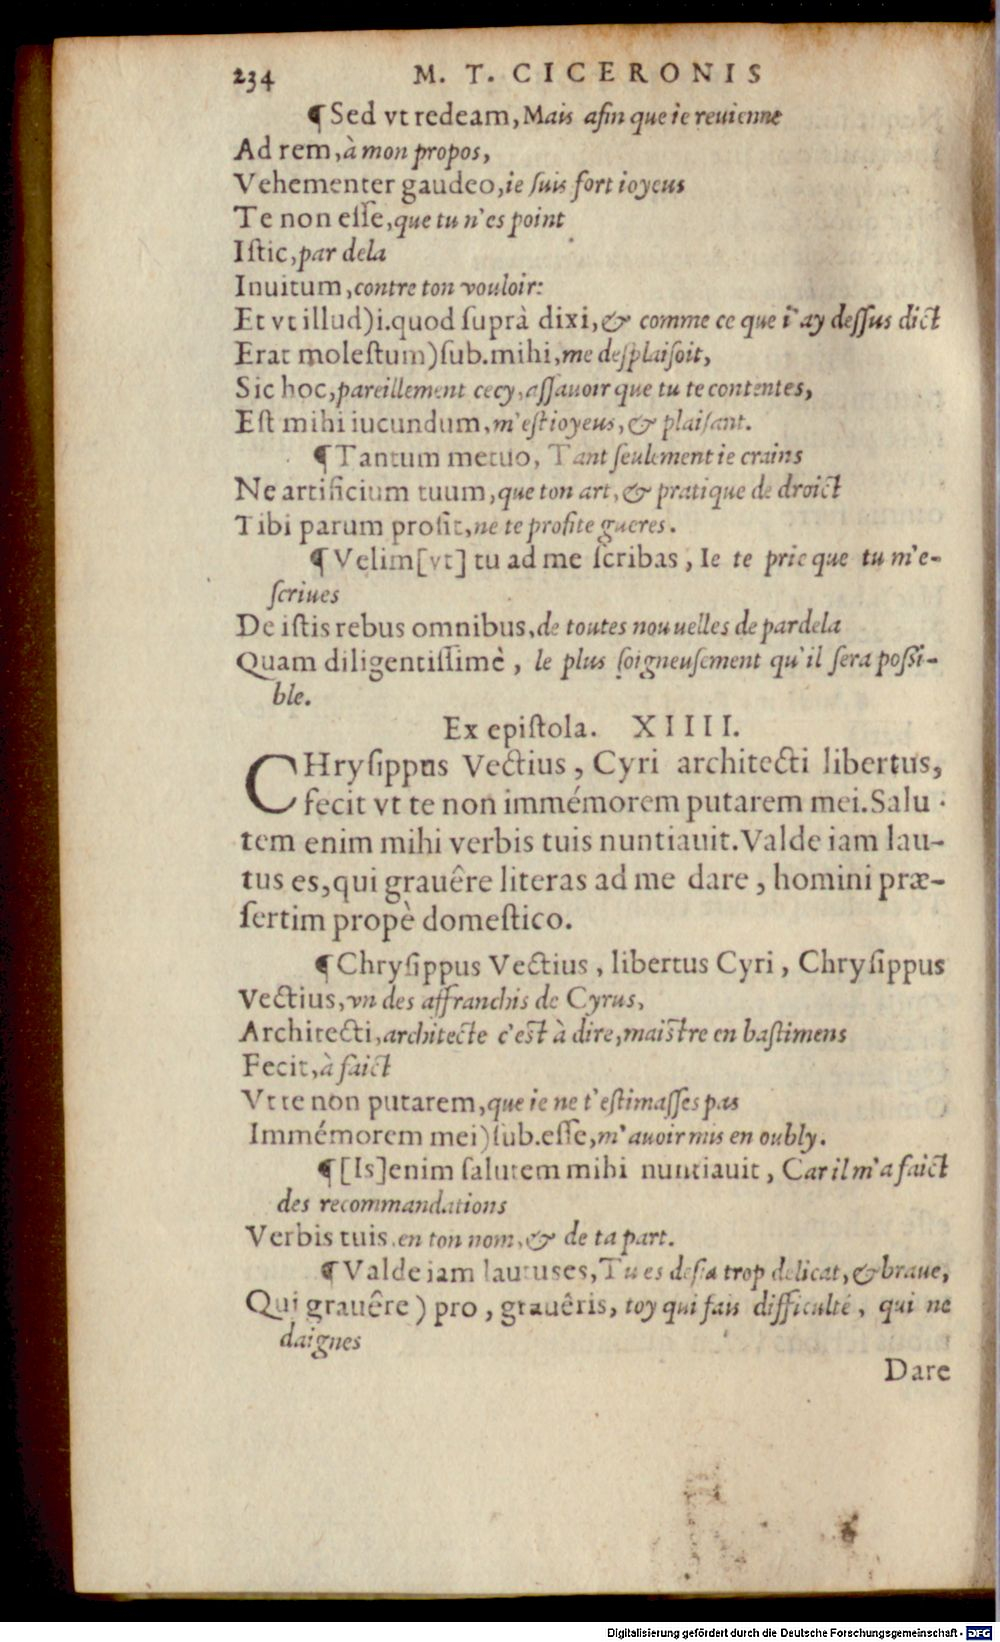 234 M. T. CICERONIS
¶ Sed vt redeam, Mais afin que ie reuienne
Ad rem, à mon propos,
Vehementer gaudeo, ie suis fort ioyeus
Te non eſſe, que tu n'es point
Iſtic, par dela
Inuitum, contre ton vouloir:
Et vt illud) i. quod ſuprà dixi, & comme ce que i'ay deſſus dict
Erat moleſtum) ſub. mihi, me deſplaiſoit,
Sic hoc, pareillement cecy, aſſauoir que tu te contentes,
Eſt mihi iucundum, m'eſt ioyeus, & plaiſant.
¶ Tantum metuo, Tant ſeulement ie crains
Ne artificium tuum, que ton art, & pratique de droict
Tibi parum proſit, ne te profite gueres.
¶ Velim [vt] tu ad me ſcribas, Ie te prie que tu m'e-
ſcriues
De iſtis rebus omnibus, de toutes nouuelles de pardela
Quam diligentiſſimè, le plus ſoigneuſement qu'il ſera poſſi-
ble.
Ex epiſtola. XIIII.
CHryſippus Vectius, Cyri architecti libertus,
fecit vt te non immémorem putarem mei. Salu-
tem enim mihi verbis tuis nuntiauit. Valde iam lau-
tus es, qui grauêre literas ad me dare, homini præ-
ſertim propè domeſtico.
¶ Chryſippus Vectius, libertus Cyri, Chryſippus
Vectius, vn des affranchis de Cyrus,
Architecti, architecte c'eſt à dire, maiſtre en baſtimens
Fecit, à faict
Vt te non putarem, que ie ne t'eſtimaſſes pas
Immémorem mei) ſub. eſſe, m'auoir mis en oubly.
¶ [Is] enim ſalutem mihi nuntiauit, Car il m'a faict
des recommandations
Verbis tuis. en ton nom, & de ta part.
¶ Valde iam lautus es, Tu es deſia trop delicat, & braue,
Qui grauêre) pro, grauêris, toy qui fais difficulté, qui ne
daignes
Dare
Digitalisierung gefördert durch die Deutsche Forschungsgemeinschaft - DFG